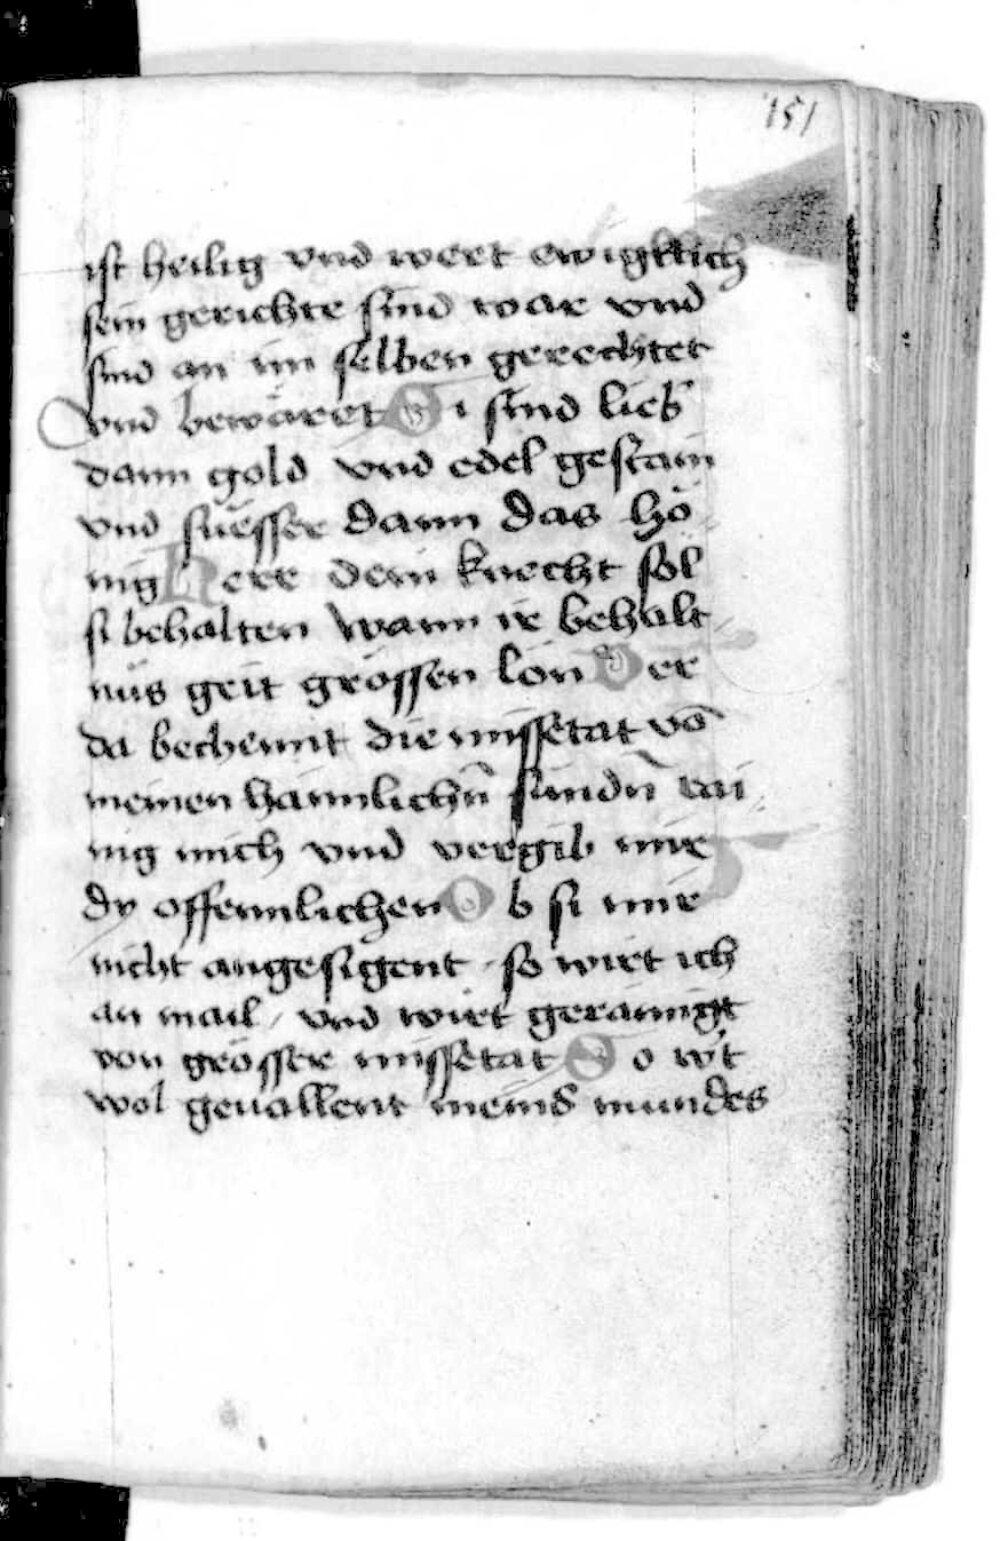 151
ist heilig vnd weret ewigklich
sein gerichte sind war vnd
sind an im selben gerechtet
vnd bewäret Si sind lieb̾
dann gold vnd edel gestain
vnd süesser dann das hö-
nig Herr dein knecht sol
si behalten wann ir behalt-
nüs geit grössen lon Wer
da bechennt die missetat vō
meinen hämlichn̄ sündn̄ rai-
nig mich vnd vergib mir
dy offennlichen Ob si mir
nicht angesigent / so wirt ich
an mail / vnd wirt gerainigt
von grösser missetat So wt
wol geuallent meins mundes